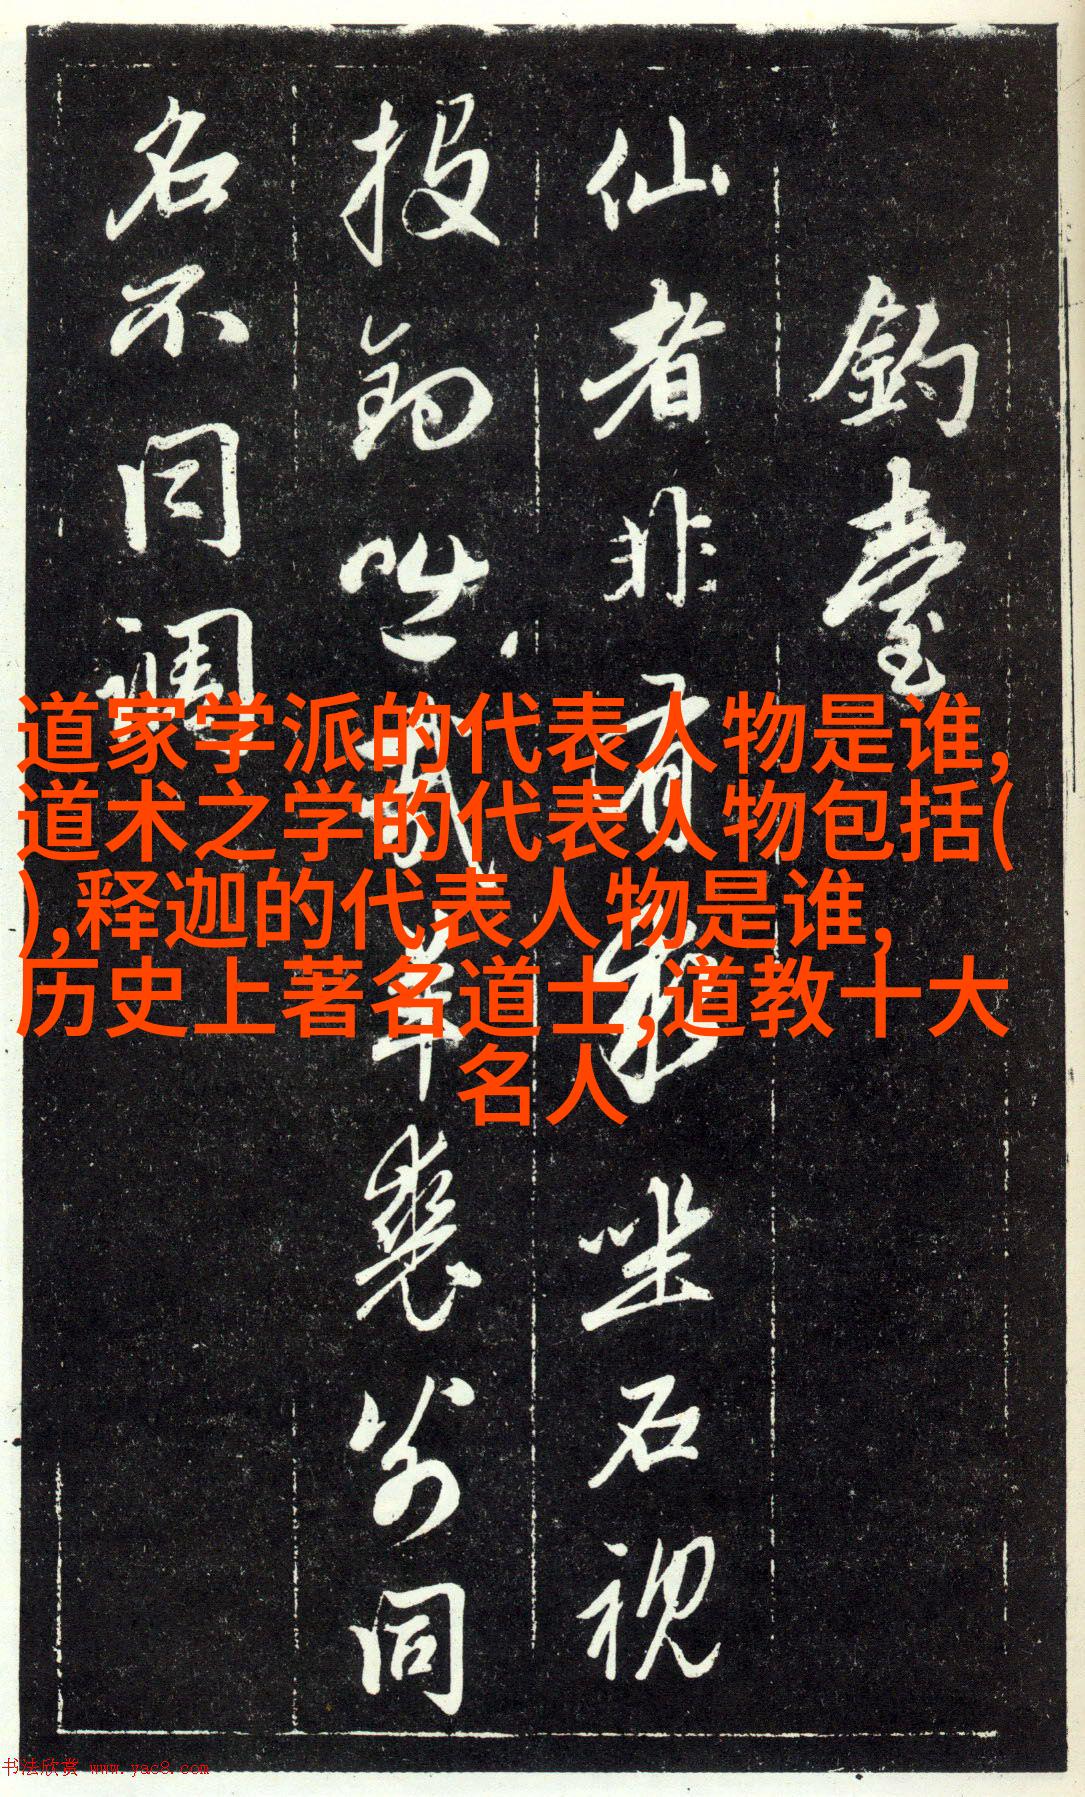 釣臺
仙者非有疑坐石視
投釣咄哉羊裘為同
名不同調
道家学派的代表人物是谁,
道术之学的代表人物包括(
),释迦的代表人物是谁,
历史上著名道士,道教十大
名人
书法欣赏 www.yac8.com